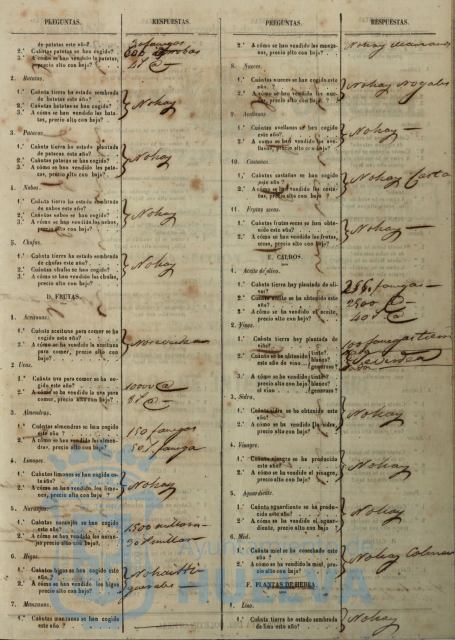 PREGUNTAS.
RESPUESTAS.
de patatas este año?
2.ª Cuántas patatas se han cogido?
3.ª A cómo se han vendido la patata, precio alto con bajo?
30 fanegas
600 arrobas
4 r @
2. Batatas.
1.ª Cuánta tierra ha estado sembrada de batatas este año?
2.ª Cuántas batatas se han cogido?
3.ª A cómo se han vendido las batatas, precio alto con bajo?
No hay
3. Patacas.
1.ª Cuánta tierra ha estado plantada de patacas este año?
2.ª Cuántas patacas se han cogido?
3.ª A cómo se han vendido las patacas, precio alto con bajo?
No hay
4. Nabos.
1.ª Cuánta tierra ha estado sembrada de nabos este año?
2.ª Cuántos nabos se han cogido?
3.ª A cómo se han vendido los nabos, precio alto con bajo?
No hay
5. Chufas.
1.ª Cuánta tierra ha estado sembrada de chufas este año?
2.ª Cuántas chufas se han cogido?
3.ª A cómo se han vendido las chufas, precio alto con bajo?
No hay
D. FRUTAS.
1. Aceitunas.
1.ª Cuánta aceituna para comer se ha cogido este año?
2.ª A cómo se ha vendido la aceituna para comer, precio alto con bajo?
2. Uvas.
1.ª Cuánta uva para comer se ha cogido este año?
2.ª A cómo se ha vendido la uva para comer, precio alto con bajo?
1000 @
8 r @
3. Almendras.
1.ª Cuántas almendras se han cogido este año?
2.ª A cómo se han vendido las almendras, precio alto con bajo?
150 fanegas
50 r fanega
4. Limones.
1.ª Cuántos limones se han cogido este año?
2.ª A cómo se han vendido los limones, precio alto con bajo?
No hay
5. Naranjas.
1.ª Cuántas naranjas se han cogido este año?
2.ª A cómo se han vendido las naranjas, precio alto con bajo?
1500 millares
30 r millar
6. Higos.
1.ª Cuántos higos se han cogido este año?
2.ª A cómo se han vendido los higos precio alto con bajo?
7. Manzanas.
1.ª Cuántas manzanas se han cogido este año?
PREGUNTAS.
RESPUESTAS.
2.ª A cómo se han vendido las manzanas, precio alto con bajo?
No hay manzanos
8. Nueces.
1.ª Cuántas nueces se han cogido este año?
2.ª A cómo se han vendido las nueces, precio alto con bajo?
No hay Nogales
9. Avellanas
1.ª Cuántas avellanas se han cogido este año?
2.ª A cómo se han vendido las avellanas, precio alto con bajo?
No hay
10. Castañas.
1.ª Cuántas castañas se han cogido este año?
2.ª A cómo se han vendido las castañas, precio alto con bajo?
No hay
11. Frutas secas.
1.ª Cuántas frutas secas se han obtenido este año?
2.ª A cómo se han vendido las frutas, secas, precio alto con bajo?
No hay
E. CALDOS.
1. Aceite de olivo.
1.ª Cuánta tierra hay plantada de olivar?
2.ª Cuánto aceite se ha obtenido este año?
3.ª A cómo se ha vendido el aceite, precio alto con bajo?
fanegas
2500 @
40 r @
2. Vinos.
1.ª Cuánta tierra hay plantada de viña?
2.ª Cuánto se ha obtenido este año de vino tinto? blanco? generoso?
3.ª A cómo se ha vendido el vino tinto? blanco? generoso?
3. Sidra.
1.ª Cuánta sidra se ha obtenido este año?
2.ª A cómo se ha vendido la sidra, precio alto con bajo?
No hay
4. Vinagre.
1.ª Cuánto vinagre se ha producido este año?
2.ª A cómo se ha vendido el vinagre, precio alto con bajo?
No hay
5. Aguardiente.
1.ª Cuánto aguardiente se ha producido este año?
2.ª A cómo se ha vendido el aguardiente, precio alto con bajo?
No hay
6. Miel.
1.ª Cuánta miel se ha cosechado este año?
2.ª A cómo se ha vendido la miel, precio alto con bajo?
No hay Colmenas
F. PLANTAS DE HEBRA.
1. Lino.
1.ª Cuánta tierra ha estado sembrada de lino este año?
No hay
HUELVA